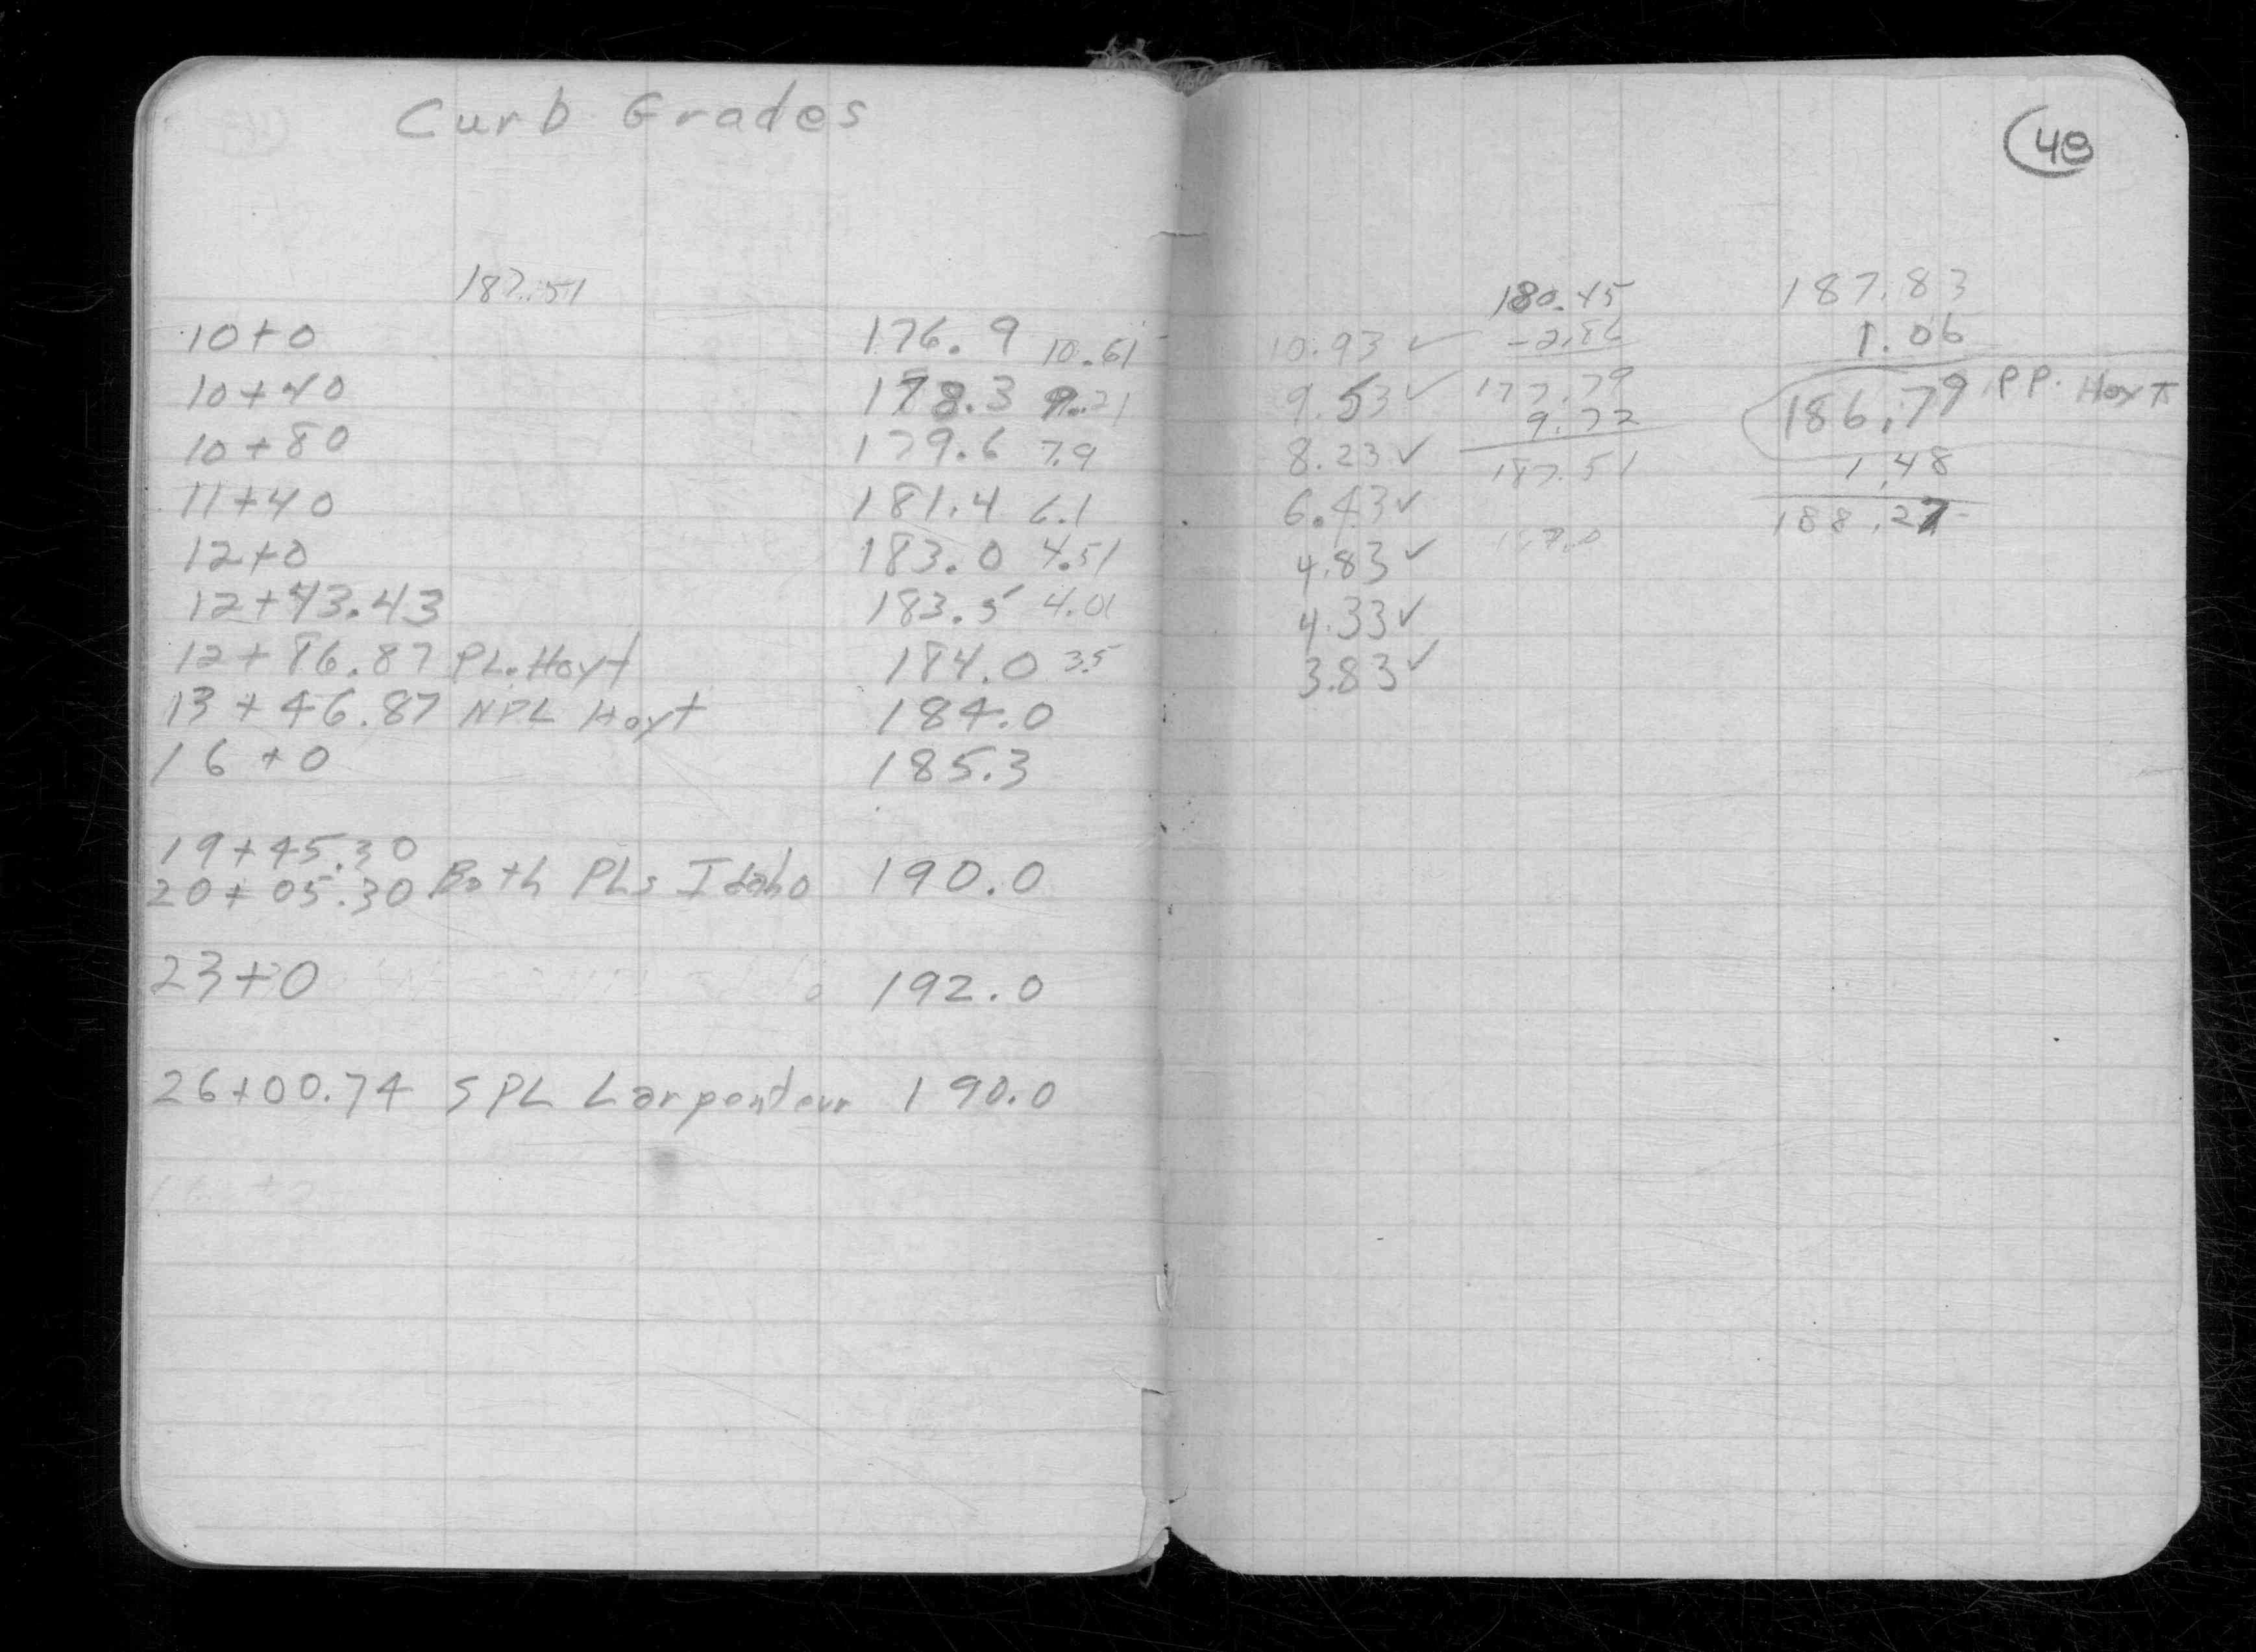 Curb Grades
187.51
10+0 176.9 10.61
10+40 178.3 9.21
10+80 179.6 7.9
11+40 181.4 6.1
12+0 183.0 4.51
12+43.43 183.5 4.01
12+86.87 PL. Hoyt 184.0 3.5
13+46.87 NPL Hoyt 184.0
16+0 185.3
19+45.30
20+05.30 Both PLs Idaho 190.0
23+0 192.0
26+00.74 SPL Larpenteur 190.0
48
180.45 187.83
10.93 ✓ 1.06
9.53 ✓ 177.79 186.79 P.P. Hoyt
9.72
8.23 ✓ 187.51 1.48
6.43 ✓ 188.27
4.83 ✓
4.33 ✓
3.83 ✓